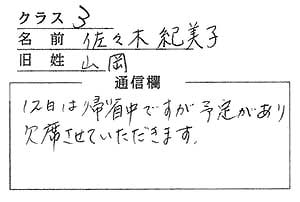 クラス 3
名前 佐々木紀美子
旧姓 山岡
通信欄
12日は帰省中ですが予定があり
欠席させていただきます。